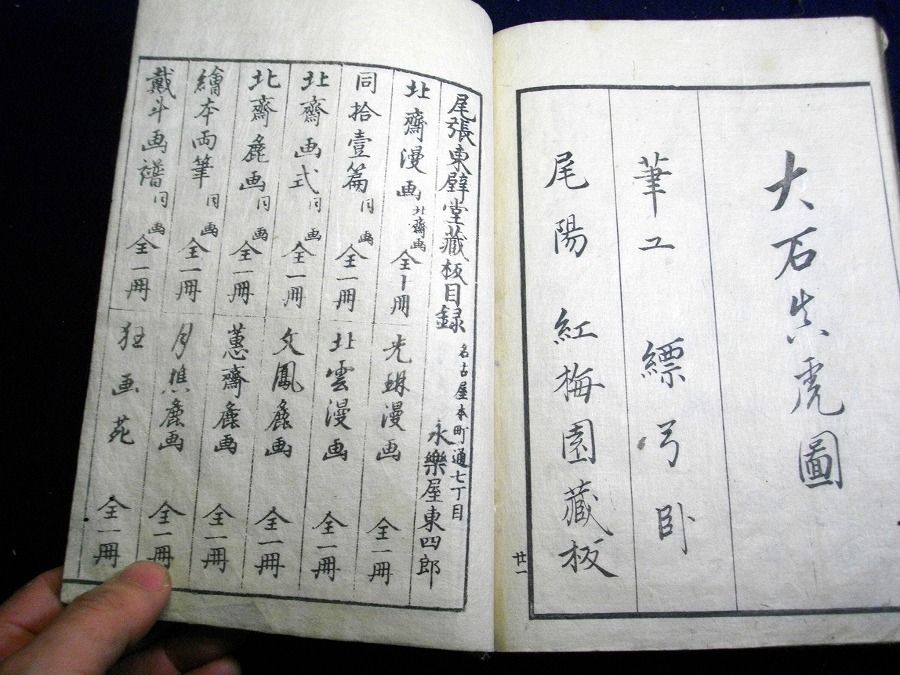 大石真虎圖
筆工 縹弓卧
尾陽 紅梅園藏板
廿一
尾張東壁堂藏板目録
名古屋本町通七丁目
永樂屋東四郎
北齋漫画 北齋画 全十冊
光琳漫画 全一冊
同拾壹篇 同画 全一冊
北雲漫画 全一冊
北齋画式 同画 全一冊
文鳳麁画 全一冊
北齋麁画 同画 全一冊
蕙齋麁画 全一冊
繪本両筆 同画 全一冊
月樵麁画 全一冊
戴斗画譜 同画 全一冊
狂画苑 全一冊